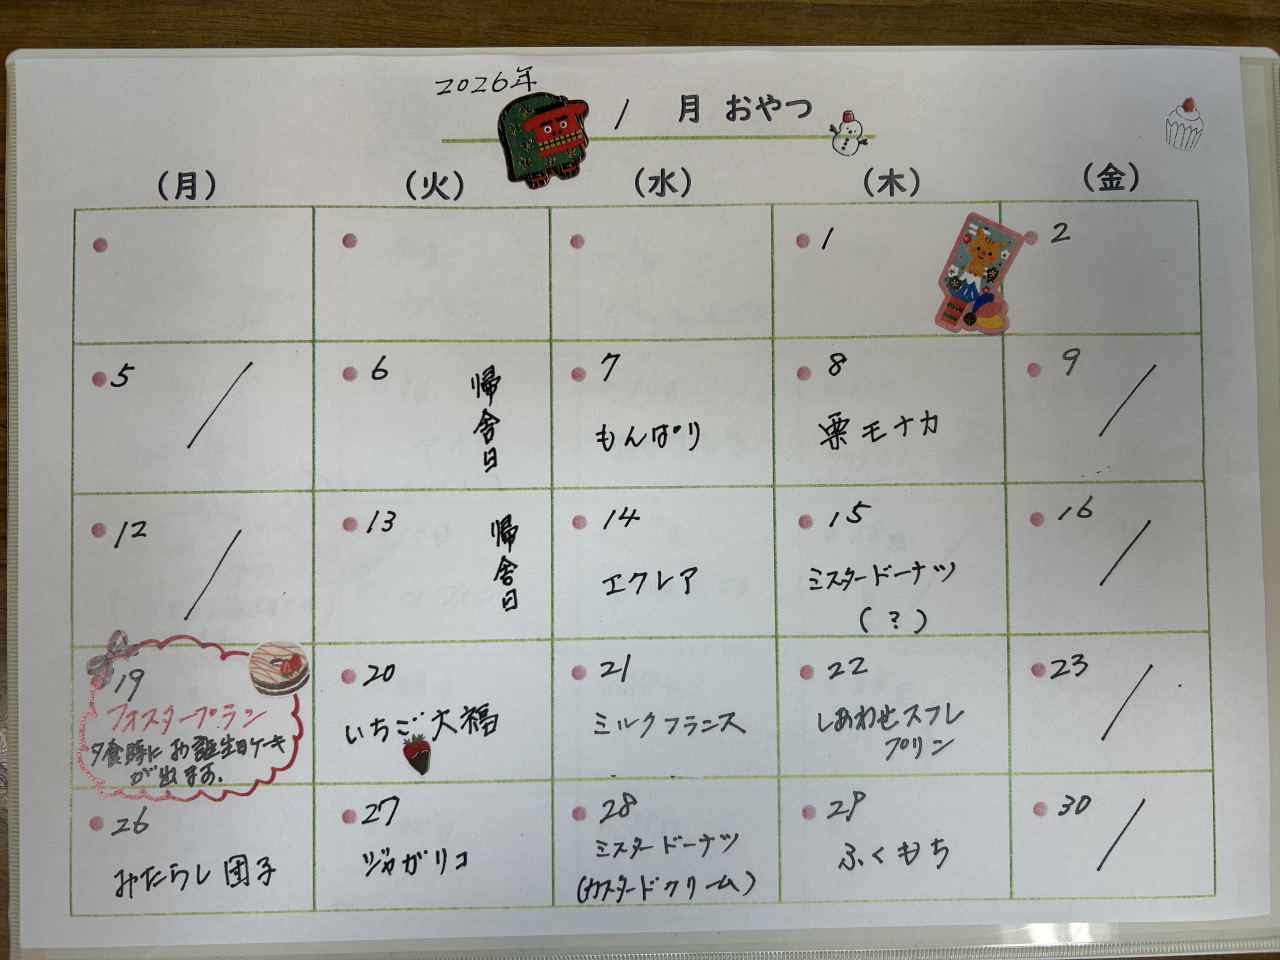 2026年
1 月 おやつ
(月) (火) (水) (木) (金)
1 2
5 / 6 帰舎日 7 もんぱり 8 栗モナカ 9 /
12 / 13 帰舎日 14 エクレア 15 ミスタードーナツ
(?)
16 /
19
フォスタープラン
夕食時にお誕生日ケーキ
が出ます。
20 いちご大福
21 ミルクフランス
22 しあわせスフレ
プリン
23 /
26 みたらし団子
27 ジャガリコ
28 ミスタードーナツ
(カスタードクリーム)
29 ふくもち
30 /